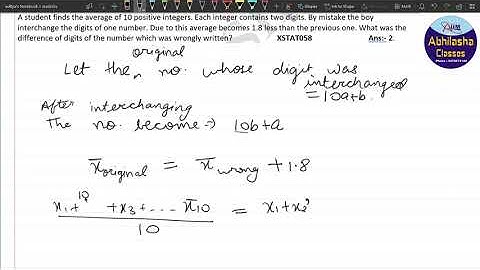 A student finds the average of 10 positive integers. Each integer contains two digits. By mistake the boy
interchange the digits of one number. Due to this average becomes 1.8 less than the previous one. What was the
difference of digits of the number which was wrongly written? XSTAT058 Ans:- 2.
Abhilasha
Classes
original
Let the no. whose digit was
interchanged
= 10a+b.
After interchanging
The no. become → 10b+a
x̄ original = x̄ wrong + 1.8
x1+ +x3+ ... x10 = x1+x2
10